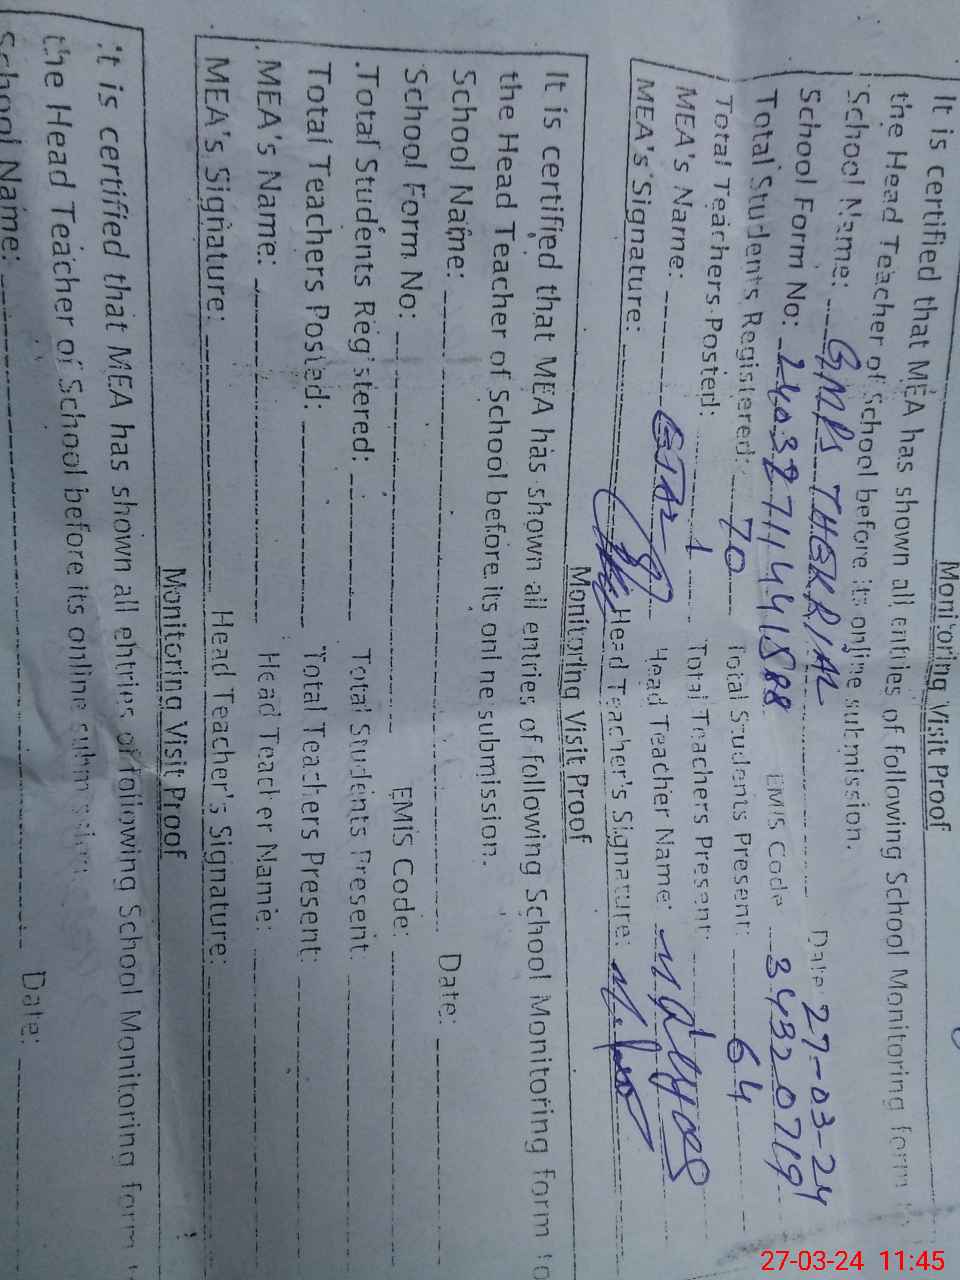 Monitoring Visit Proof
It is certified that MEA has shown all entries of following School Monitoring form
the Head Teacher of School before its online submission.
School Name: GMPS THEKRIAN Date: 27-03-24
School Form No: EMIS Code 34320719
Total Students Registered: 70 Total Students Present: 64
Total Teachers Posted: 1 Total Teachers Present:
MEA's Name: Head Teacher Name:
MEA's Signature: Head Teacher's Signature:
Monitoring Visit Proof
It is certified that MEA has shown all entries of following School Monitoring form to
the Head Teacher of School before its online submission.
School Name: Date:
School Form No: EMIS Code:
Total Students Registered: Total Students Present:
Total Teachers Posted: Total Teachers Present:
MEA's Name: Head Teacher Name:
MEA's Signature: Head Teacher's Signature:
Monitoring Visit Proof
It is certified that MEA has shown all entries of following School Monitoring form
the Head Teacher of School before its online submission
School Name: Date:
27-03-24 11:45